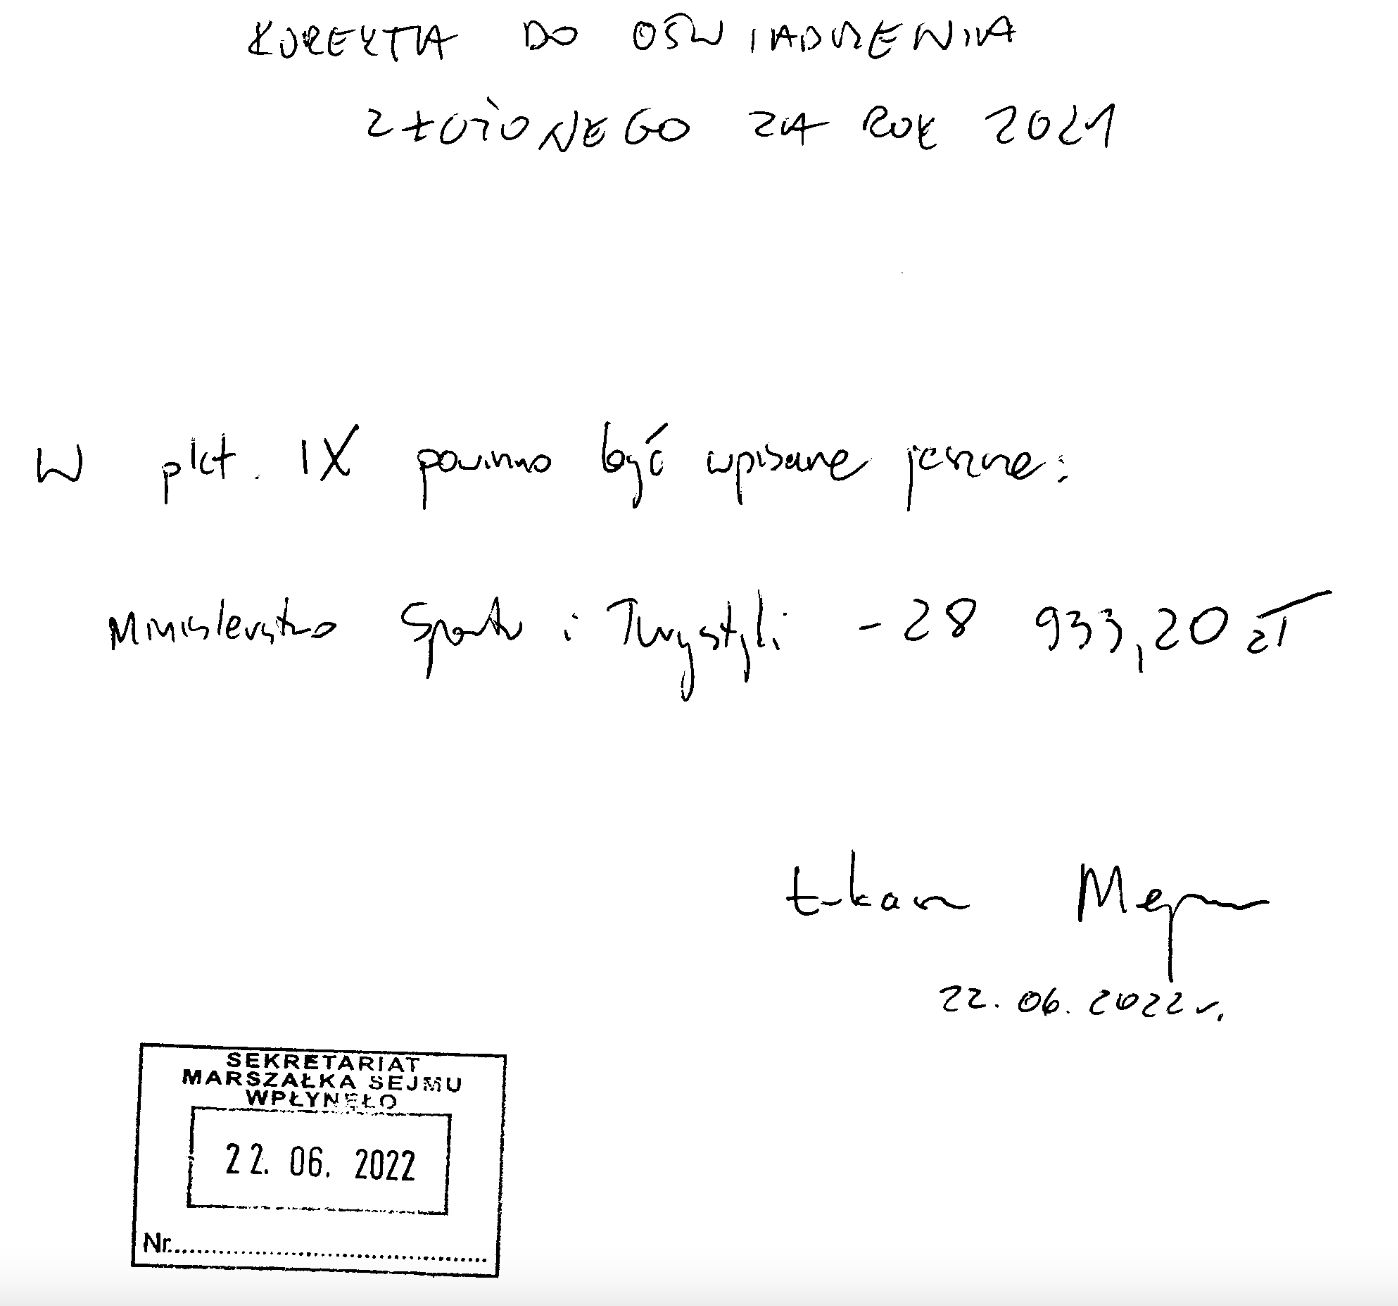 KOREKTA DO OŚWIADCZENIA
ZŁOŻONEGO ZA ROK 2021
W pkt. IX powinno być wpisane jeszcze:
Ministerstwo Sportu i Turystyki - 28 933,20 zł
Łukasz
22.06.2022 r.
SEKRETARIAT
MARSZAŁKA SEJMU
WPŁYNĘŁO
22. 06. 2022
Nr